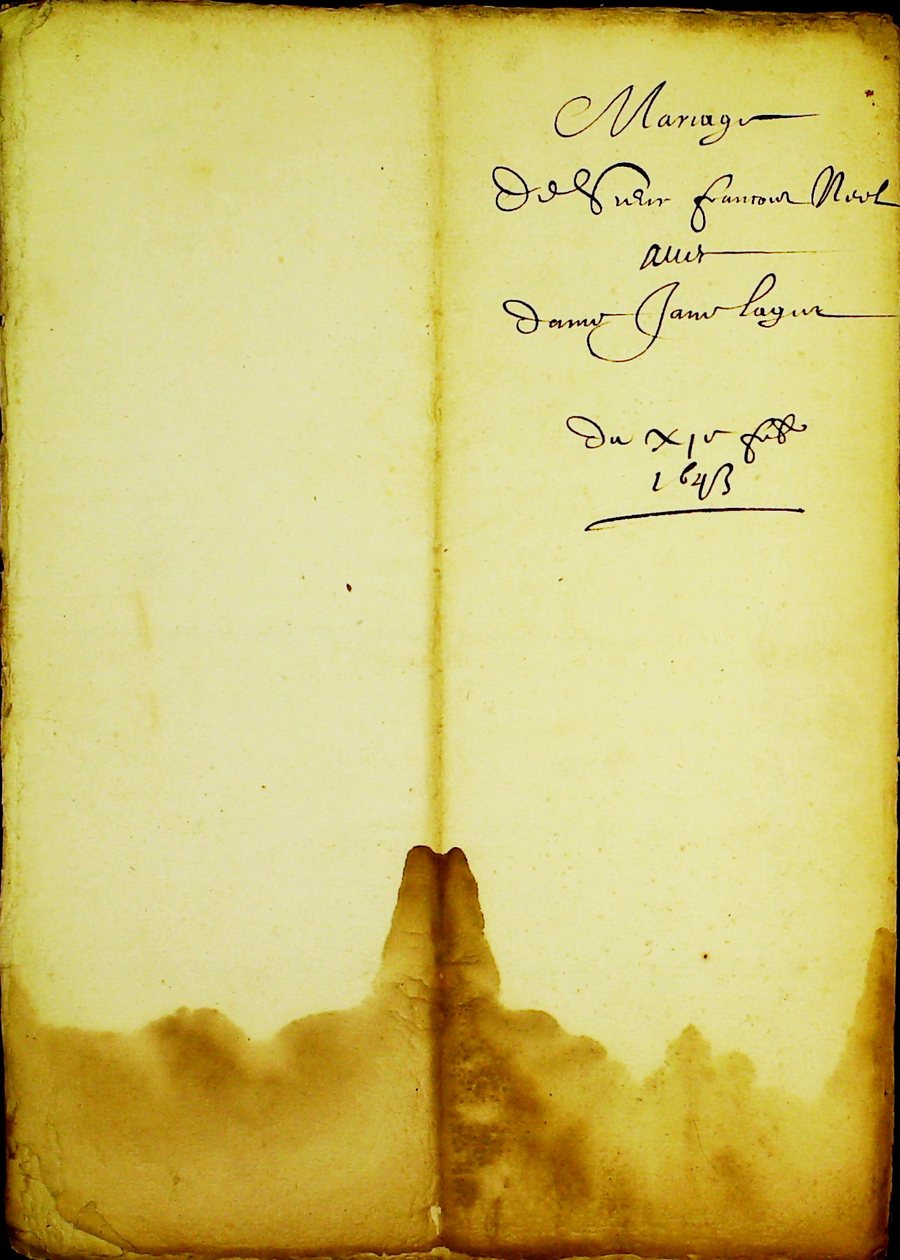 Mariage
de Sieur francois Neel
avec
dame Jane
du XIe feb
1643